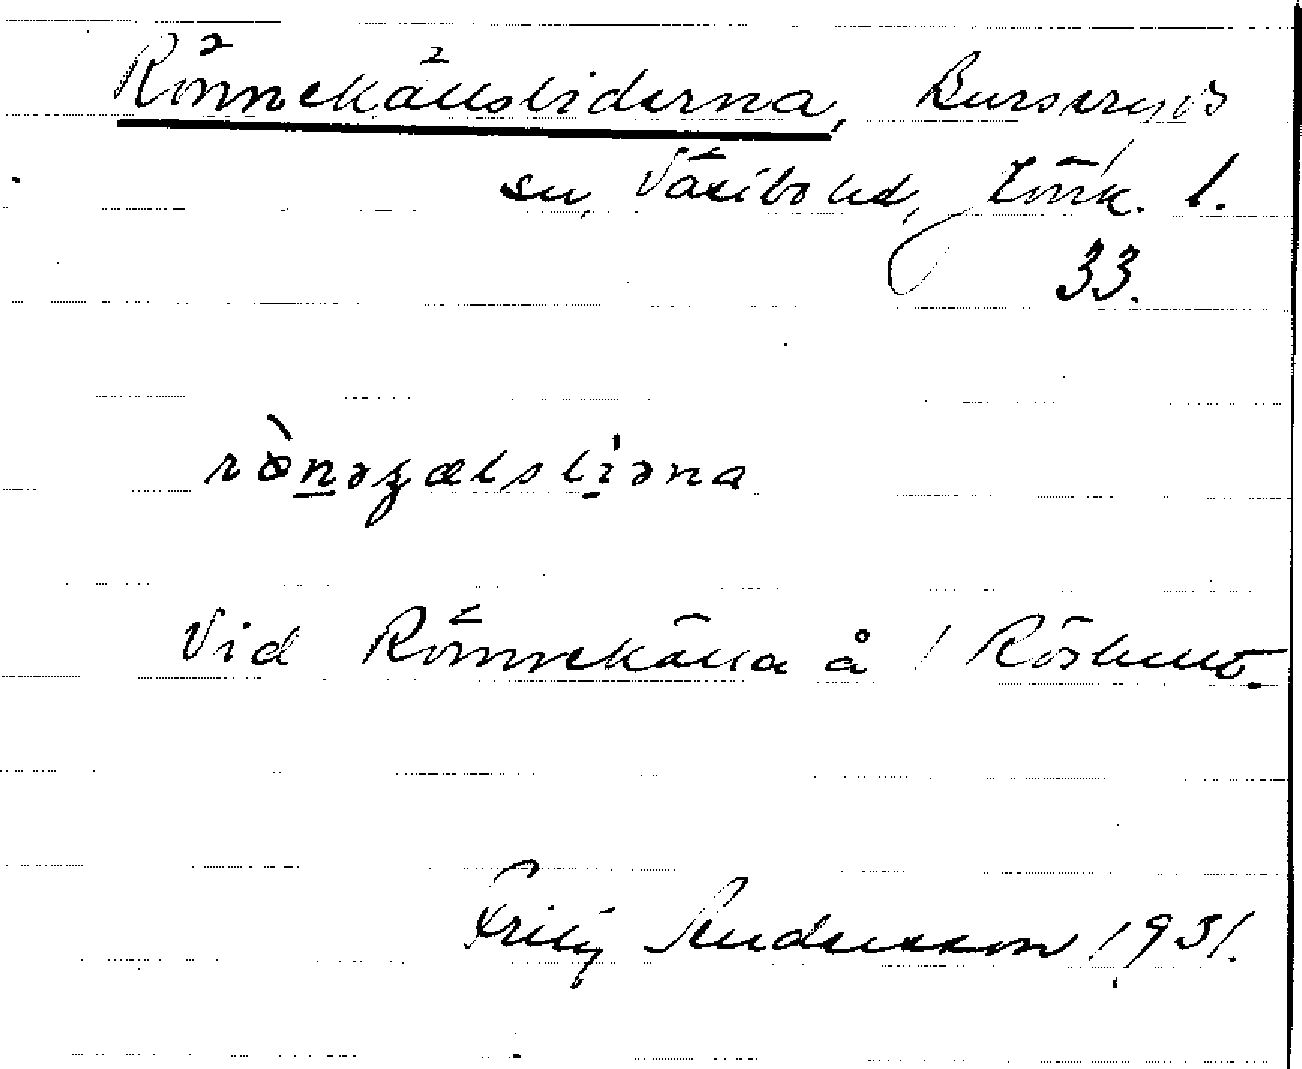 Rönnekällsliderna, Burseryds
sn, Västbo hd, Jönk. l.
33.
rö̀nəʒælsliəna
Vid Rönnekälla å
Fritz Andersson 1931.